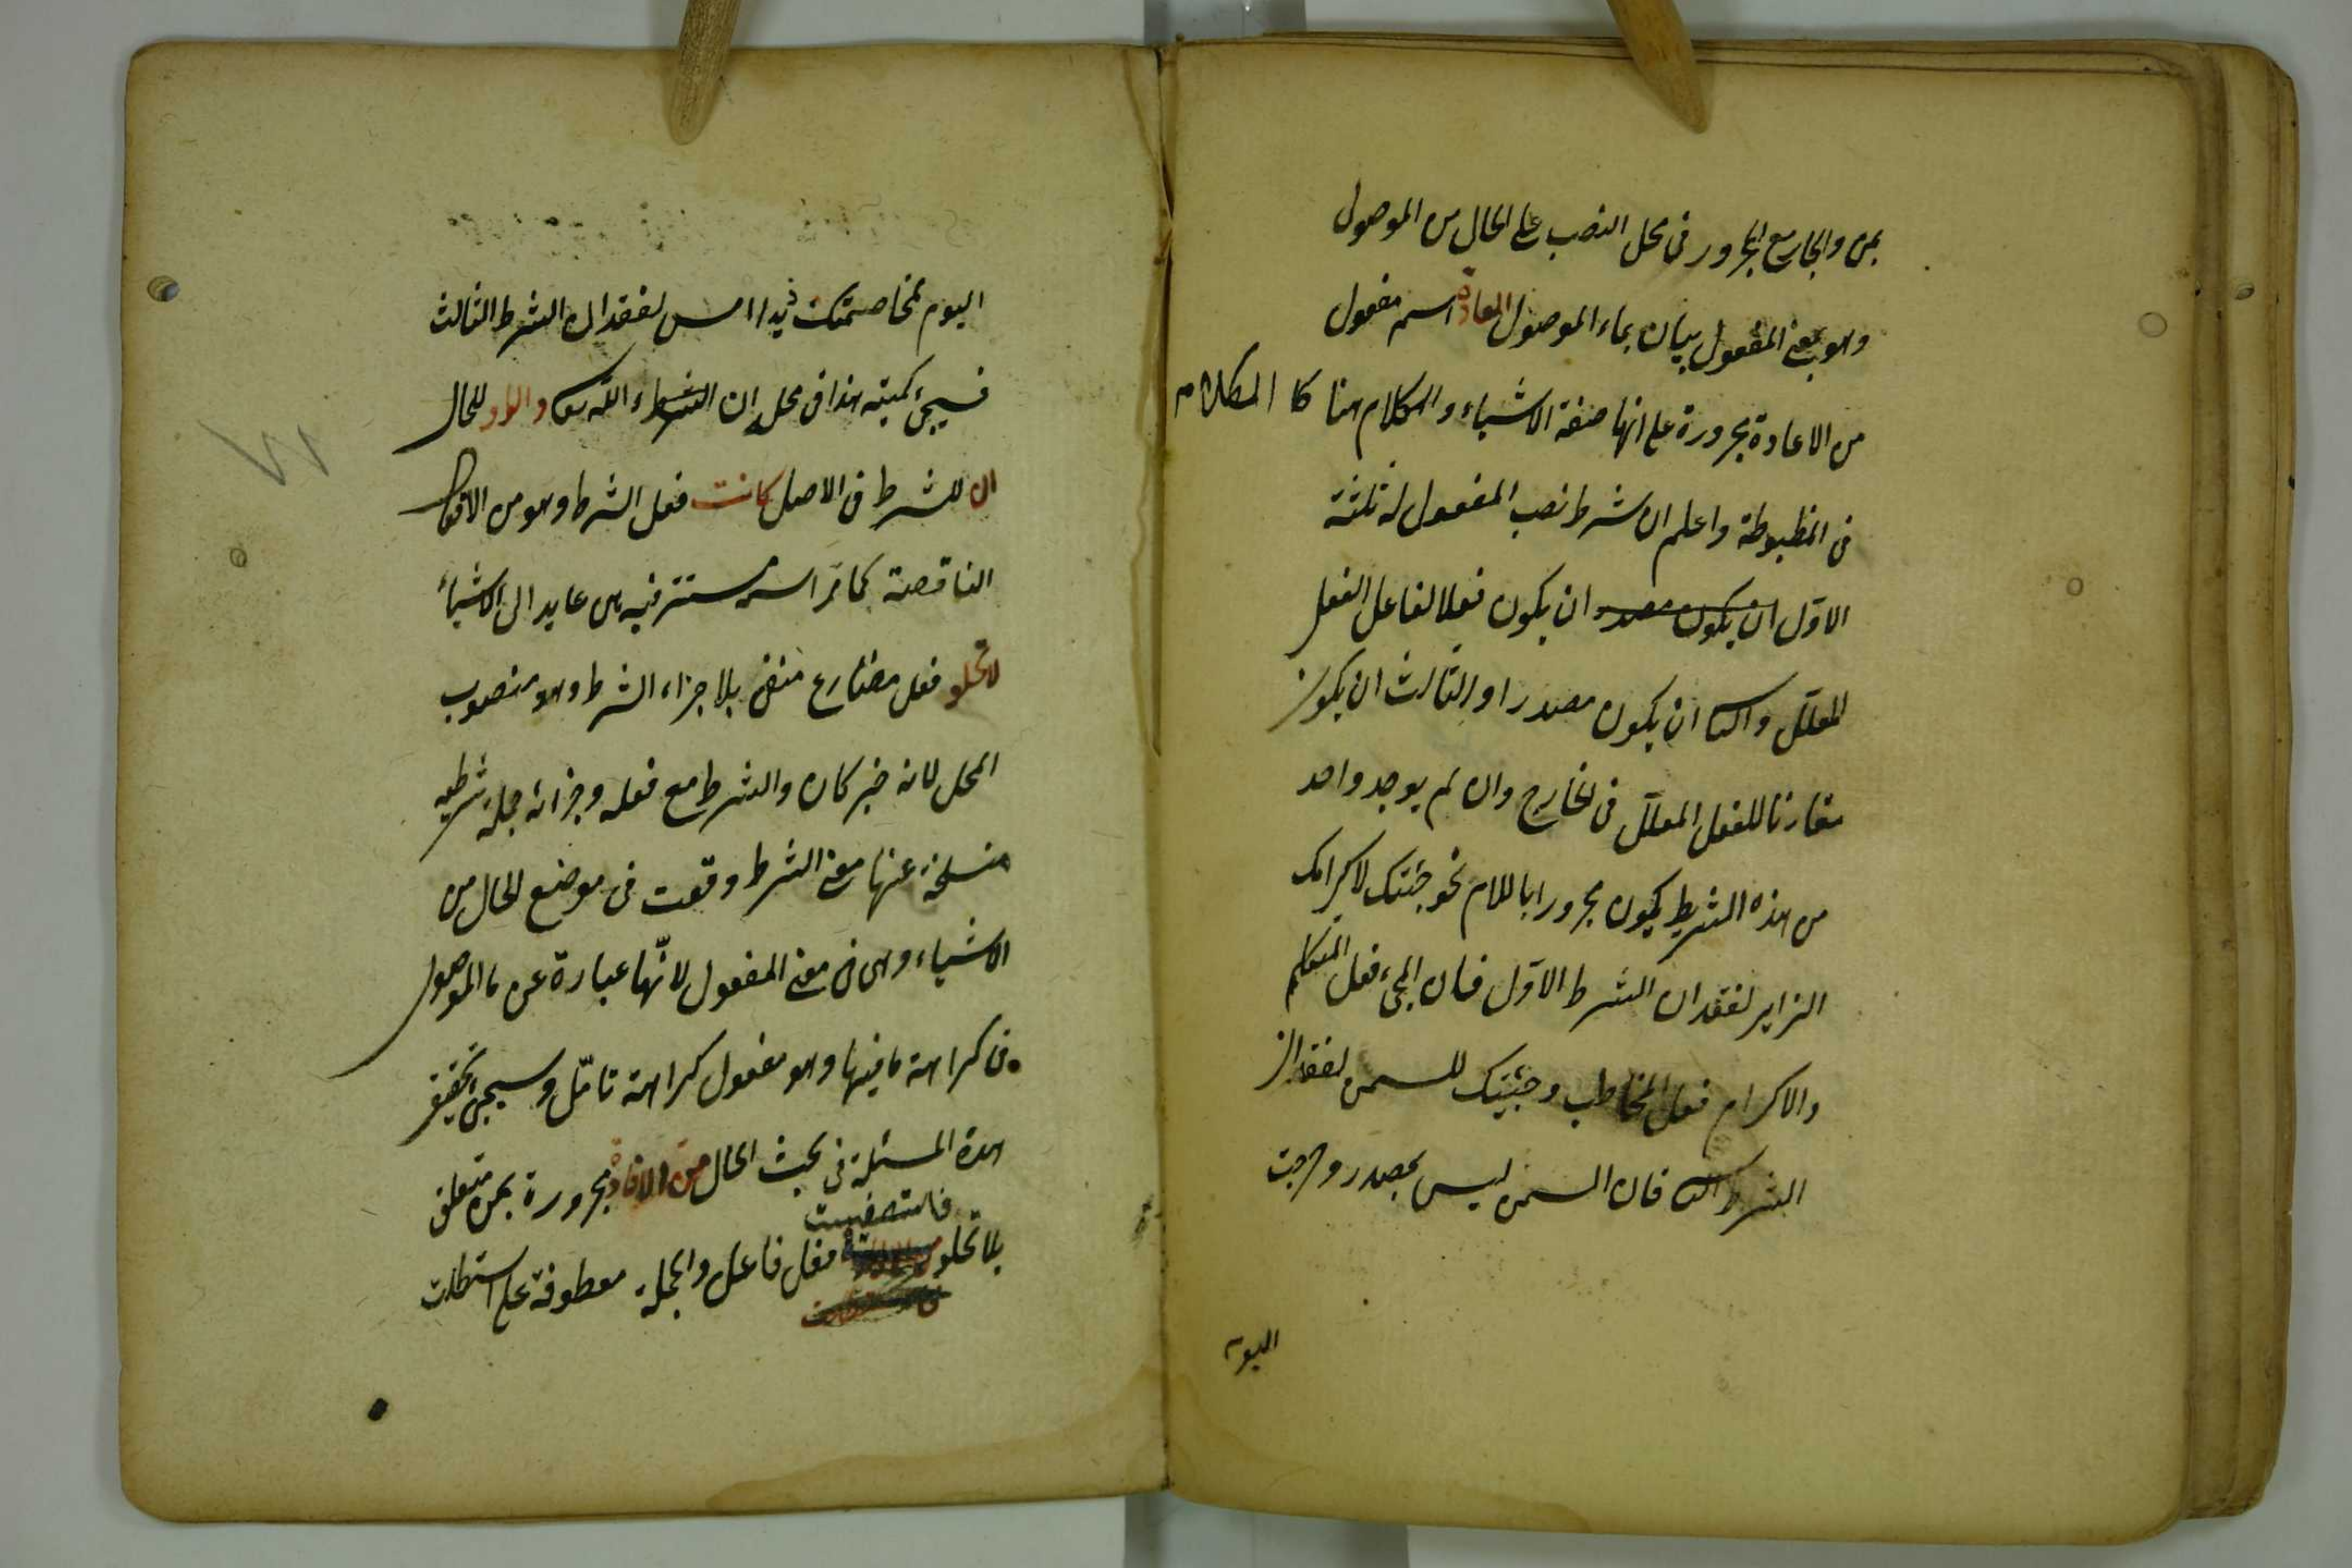 بمن والجار مع المجرور فى محل النصب على الحال من الموصول
وهو بمعنى المفعول بيان بماء الموصول المعادة اسم مفعول
من الاعادة مجرورة على انها صفة الاشياء والكلام هنا كا الكلام
فى المضبوطة واعلم ان شرط نصب المفعول له ثلثة
الاول ان يكون مصدر ان يكون فعلا لفاعل الفعل
المعلل والثا ان يكون مصدرا والثالث ان يكون
مقارنا للفعل المعلل فى الخارج وان لم يوجد واحد
من هذه الشرايط يكون مجرورا باللام نحو جئتك لاكرامك
الزاير لفقدان الشرط الاول فان المجئ فعل المتكلم
والاكرام فعل المخاطب وجئتك للسمن لفقدان
الشرط الثا فان السمن ليس بمصدر وخرجت
اليوم
اليوم لمخاصمتك زيدا امس لفقدان الشرط الثالث
فسيجئ كميته هذا فى محل ان الشرط ان شاء الله تعا والواو للحال
ان للشرط فى الاصل كانت فعل الشرط وهو من الافعال
الناقصة كما مر اسمه مستتر فيه هى عايد الى الاشياء
لا تخلو فعل مضارع منفى بلا جزاء الشرط وهو منصوب
المحل لانه خبر كان والشرط مع فعله وجزائه جملة شرطيه
منسلخة عنها معنى الشرط وقعت فى موضع الحال من
الاشياء وهى فى معنى المفعول لانها عبارة عن ما الموصول
فى كراهة ما فيها وهو مفعول كراهة تامل وسيجئ تحقيق
هذه المسئلة فى بحث الحال من الافادة مجرورة بمن متعلق
فاستصفيت
بلا تخلو فعل فاعل والجملة معطوفة على استطلت